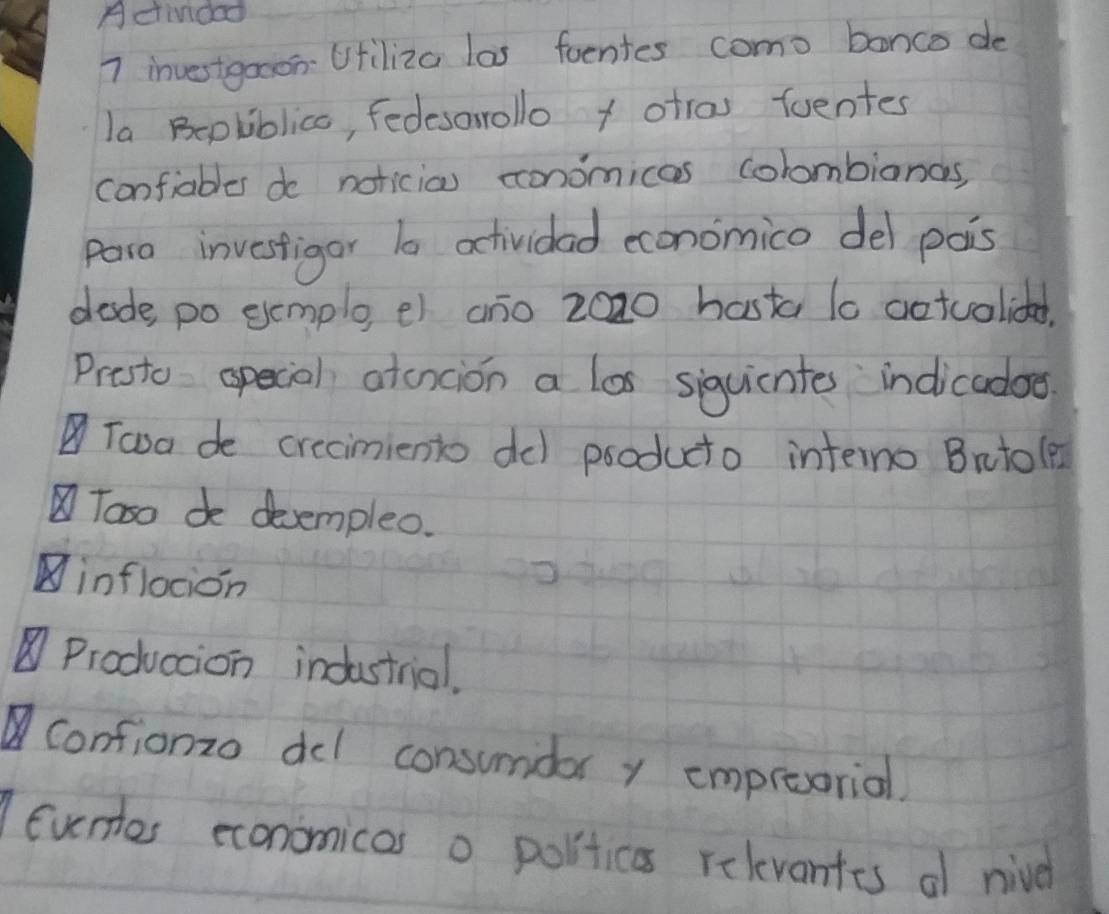 Actividad
1 investigación: Utiliza las fuentes como banco de
la República, Fedesarrollo y otras fuentes
confiables de noticias económicas colombianas,
para investigar la actividad económica del país
desde, po ejemplo, el año 2020 hasta la actualidad.
Presta especial atención a los siguientes indicadores.
Tasa de crecimiento del producto interno Bruto
Tasa de desempleo.
inflación
Producción industrial.
Confianza del consumidor y empresarial.
Eventos económicos o políticos relevantes al nivel